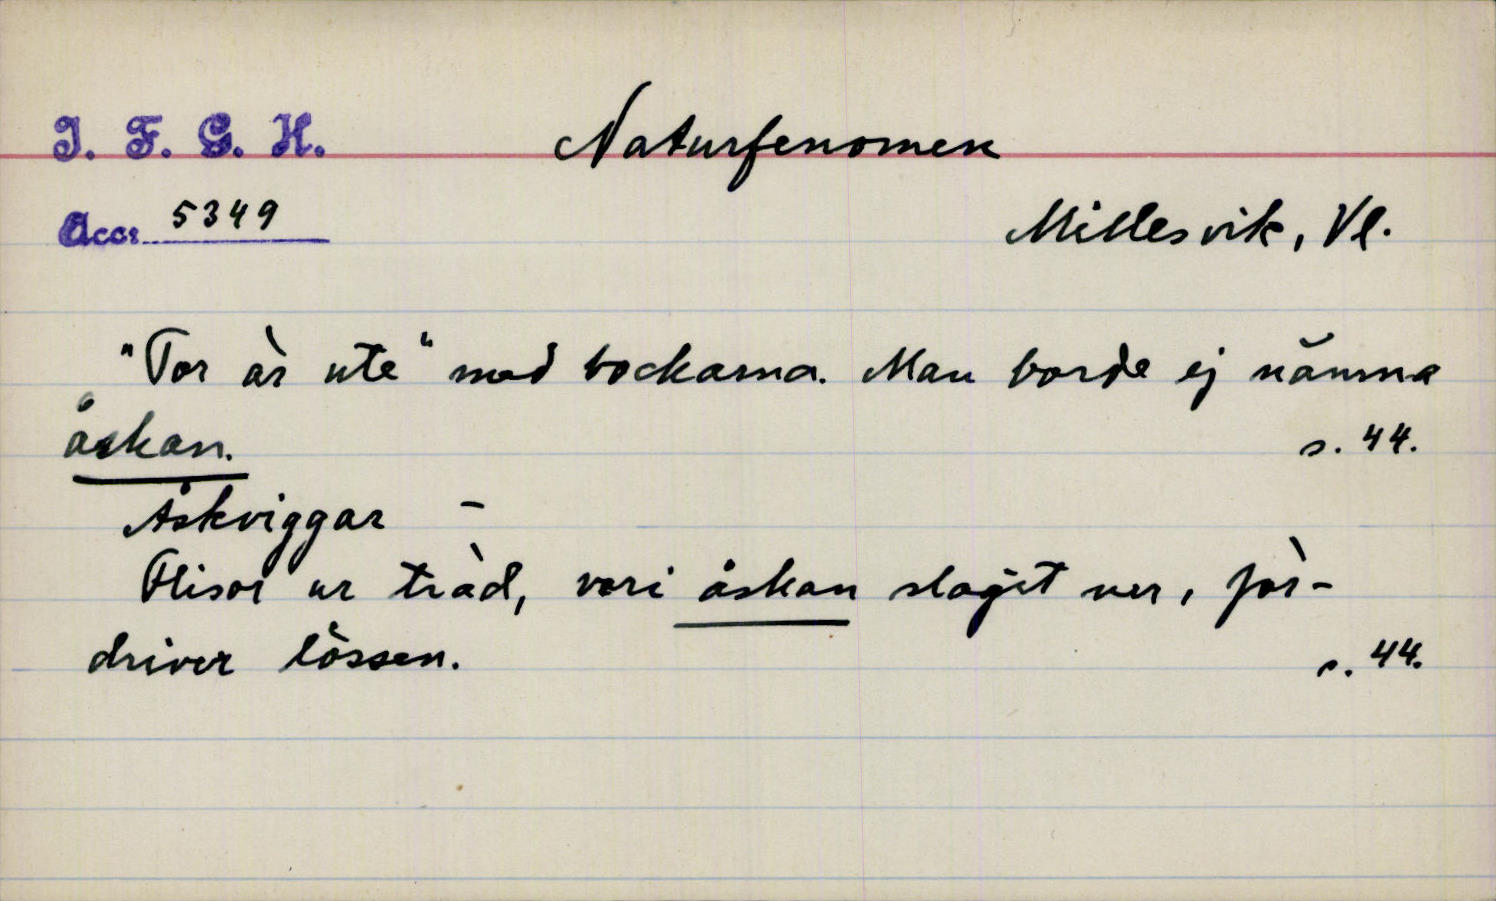 I. F. G. H.
Naturfenomen
Accs 5349
Millesvik, Vl.
"Tor är ute" med bockarna. Man borde ej nämna
åskan. s. 44.
Åskviggar –
Flisor ur träd, vari åskan slagit ner, för-
driver lössen. s. 44.